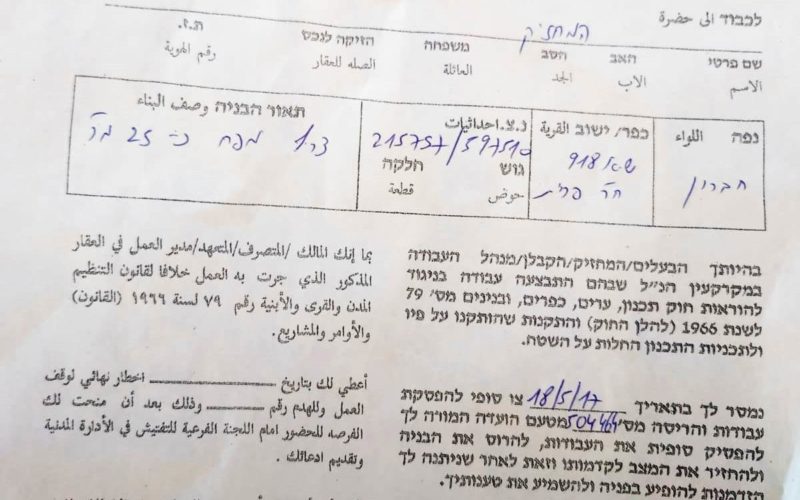 לכבוד الى حضرة
המחזיק
שם פרטי האב הסב משפחה הזיקה לנכס ת.ז.
الاسم الاب الجد العائلة الصله للعقار رقم الهوية
נפה اللواء כפר/ישוב القرية נ.צ. احداثيات תאור הבניה وصف البناء
חברון 918 215757/597510 גוש חלקה حوض قطعة 25
בהיותך הבעלים/המחזיק/הקבלן/מנהל העבודה
במקרקעין הנ"ל שבהם התבצעה עבודה בניגוד
להוראות חוק תכנון, ערים, כפרים, ובנינים מס' 79
לשנת 1966 (להלן החוק) והתקנות שהותקנו על פיו
ולתכניות התכנון החלות על השטח.
נמסר לך בתאריך 18/5/17 צו סופי להפסקת
עבודות והריסה מס' 504464 מטעם הועדה המורה לך
להפסיק סופית את העבודות, להרוס את הבניה
ולהחזיר את המצב לקדמותו וזאת לאחר שניתנה לך
הזדמנות להופיע בפניה ולהשמיע את טענותיך.
بما إنك المالك /المتصرف/المتعهد/مدير العمل في العقار
المذكور الذي جرت به العمل خلافا لقانون التنظيم
المدن والقرى والأبنية رقم ٧٩ لسنة ١٩٦٦ (القانون)
والأوامر والمشاريع.
أعطي لك بتاريخ اخطار نهائي لوقف
العمل وللهدم رقم وذلك بعد أن منحت لك
الفرصه للحضور امام اللجنة الفرعية للتفتيش في الأدارة المدنية
وتقديم ادعائك.